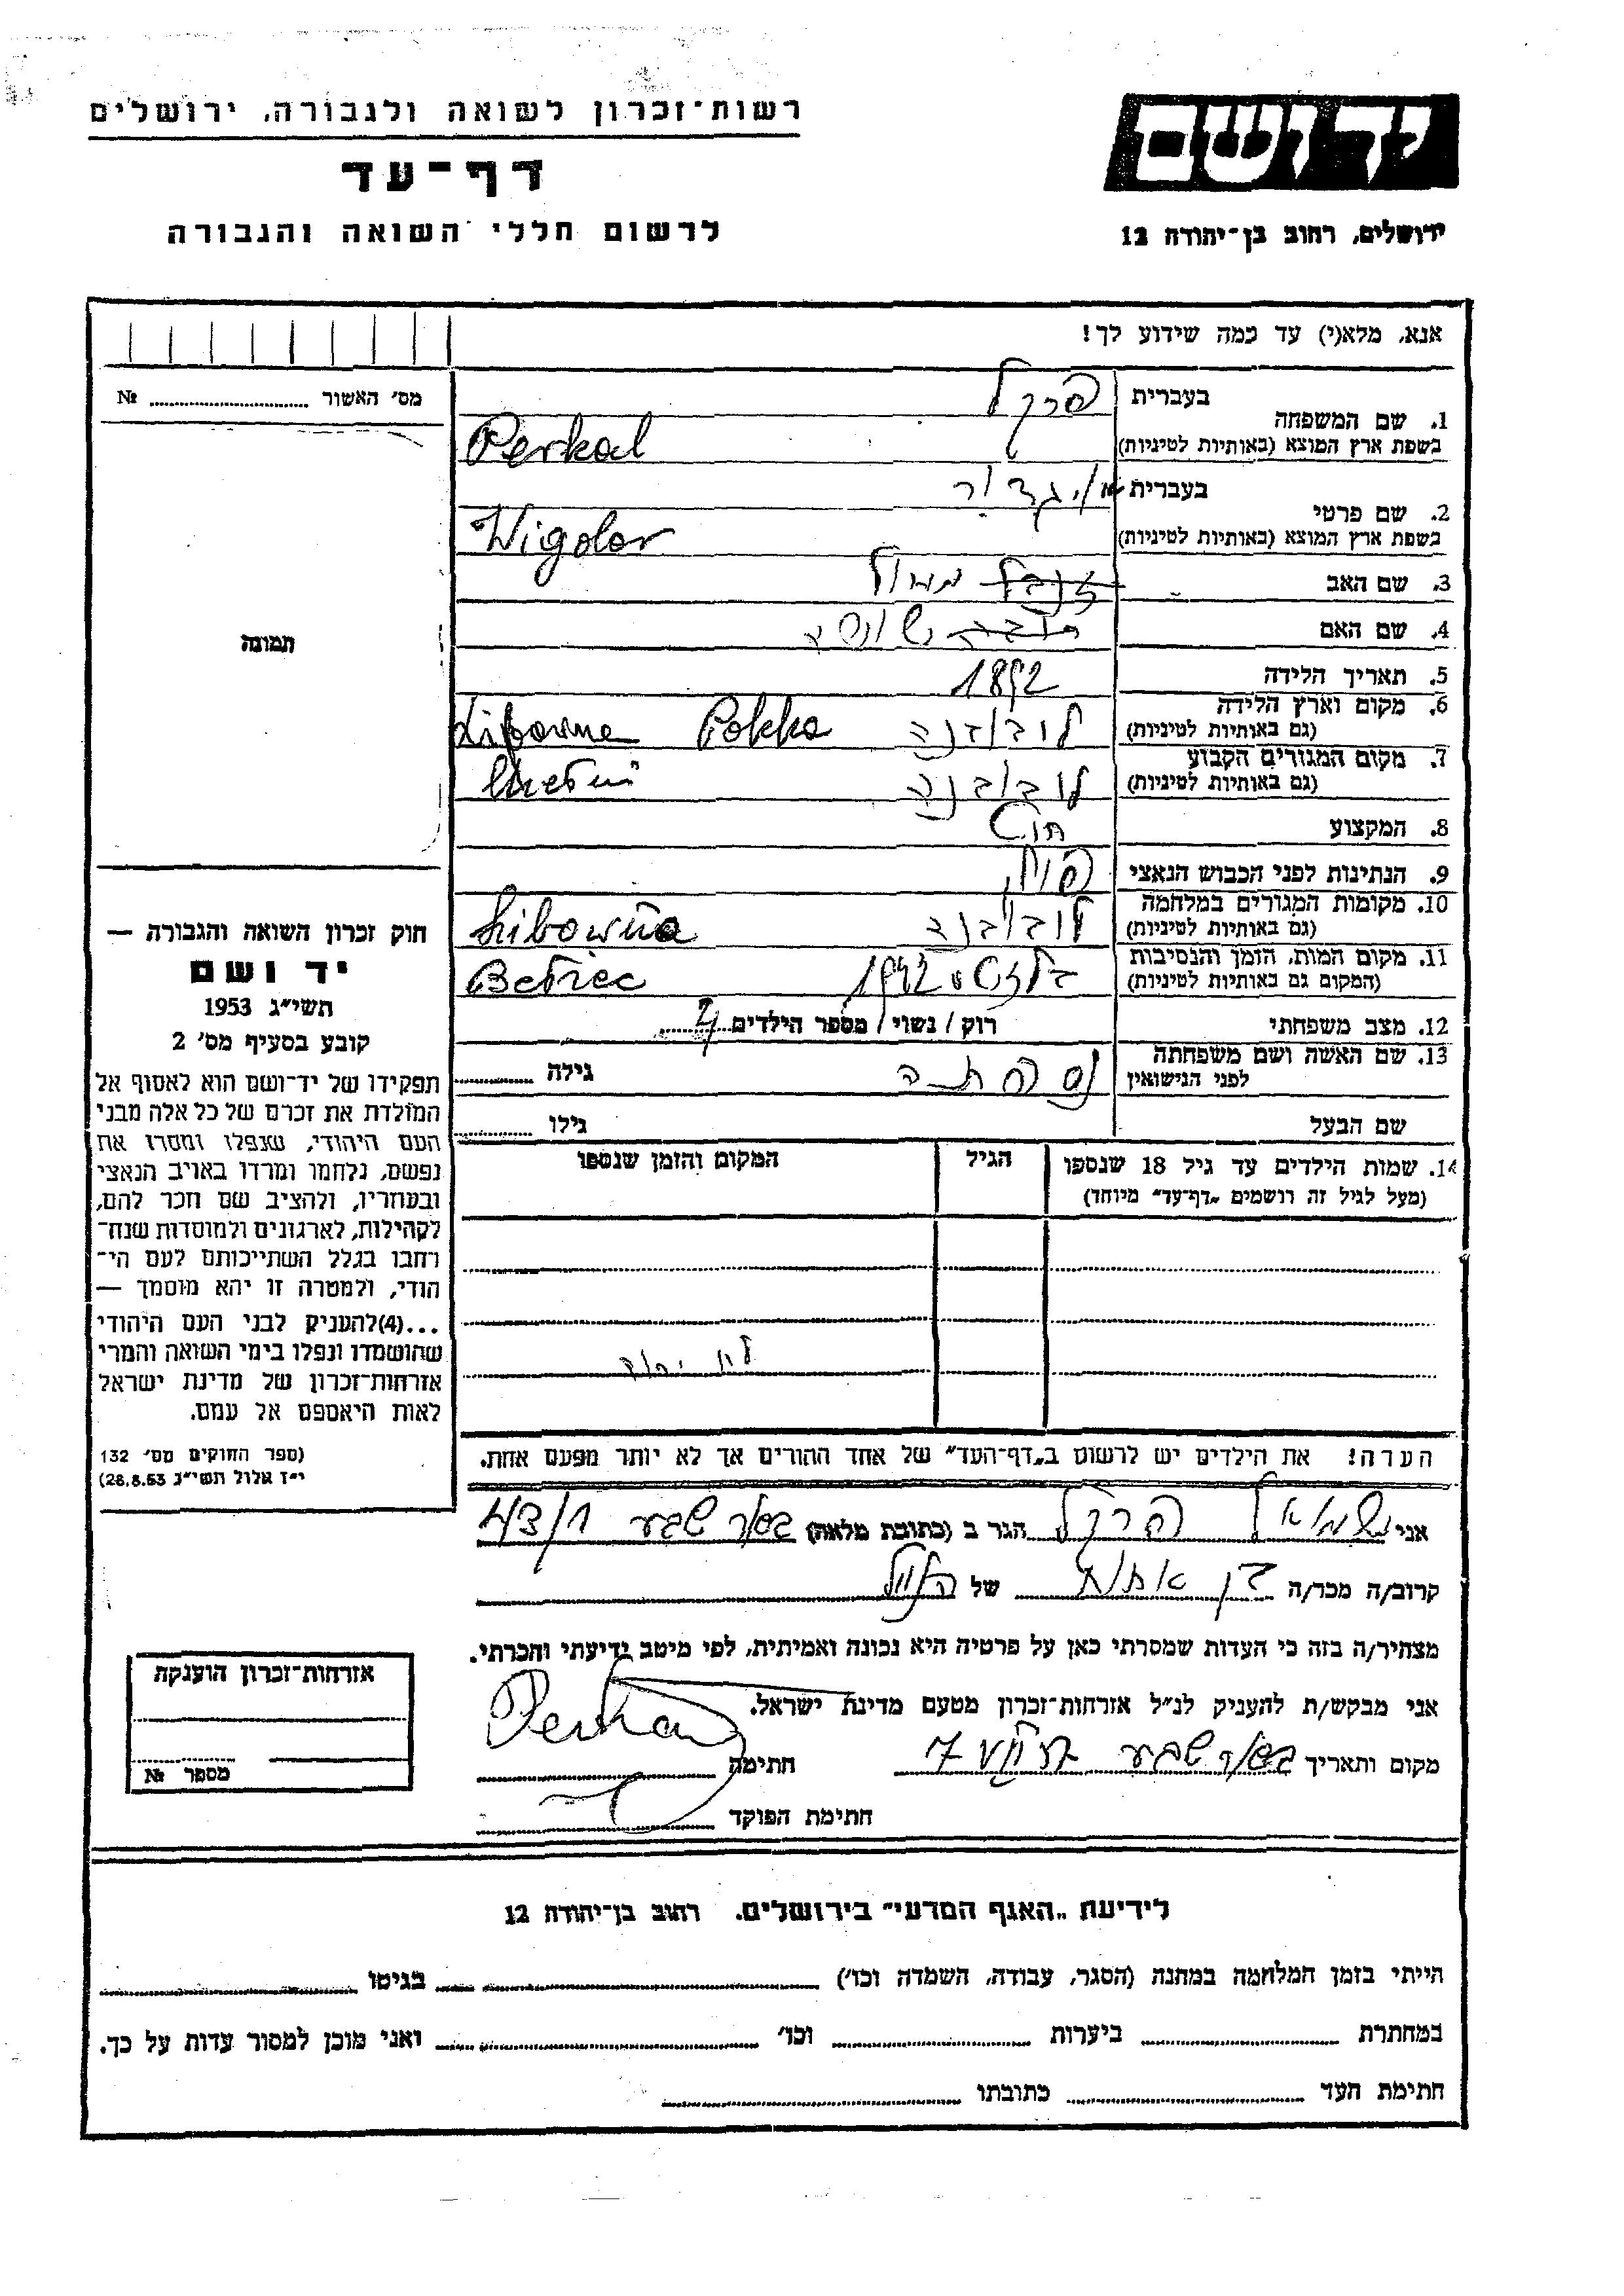 רשות־זכרון לשואה ולגבורה, ירושלים
דף־עד
לרשום חללי השואה והגבורה
יד ושם
ירושלים, רחוב בן־יהודה 12
אנא, מלא(י) עד כמה שידוע לך!
מס׳ האשור № 
תמונה
1. שם המשפחה
בעברית פרקל
בשפת ארץ המוצא (באותיות לטיניות) Perkal
2. שם פרטי
בעברית אויגדור
בשפת ארץ המוצא (באותיות לטיניות) Wigdor
3. שם האב
4. שם האם
5. תאריך הלידה 1892
6. מקום וארץ הלידה
(גם באותיות לטיניות)
7. מקום המגורים הקבוע
(גם באותיות לטיניות)
8. המקצוע
9. הנתינות לפני הכבוש הנאצי
10. מקומות המגורים במלחמה
(גם באותיות לטיניות)
11. מקום המות, הזמן והנסיבות
(המקום גם באותיות לטיניות) 1942
12. מצב משפחתי רוק / נשוי / מספר הילדים 4
13. שם האשה ושם משפחתה
לפני הנישואין גילה
שם הבעל גילו
14. שמות הילדים עד גיל 18 שנספו הגיל המקום והזמן שנספו
(מעל לגיל זה רושמים „דף־עד״ מיוחד)
הערה! את הילדים יש לרשום ב„דף־העד״ של אחד ההורים אך לא יותר מפעם אחת.
חוק זכרון השואה והגבורה —
יד ושם
תשי״ג 1953
קובע בסעיף מס׳ 2
תפקידו של יד־ושם הוא לאסוף אל
המולדת את זכרם של כל אלה מבני
העם היהודי, שנפלו ומסרו את
נפשם, נלחמו ומרדו באויב הנאצי
ובעוזריו, ולהציב שם וזכר להם,
לקהילות, לארגונים ולמוסדות שנח־
רבו בגלל השתייכותם לעם הי־
הודי, ולמטרה זו יהא מוסמך —
...(4) להעניק לבני העם היהודי
שהושמדו ונפלו בימי השואה והמרי
אזרחות־זכרון של מדינת ישראל
לאות היאספם אל עמם.
(ספר החוקים מס׳ 132
י״ז אלול תשי״ג 28.8.53)
אני שמואל פרקל הגר ב (כתובת מלאה) באר שבע
קרוב/ה מכר/ה בן אחות של הנ״ל
מצהיר/ה בזה כי העדות שמסרתי כאן על פרטיה היא נכונה ואמיתית, לפי מיטב ידיעתי והכרתי.
אני מבקש/ת להעניק לנ״ל אזרחות־זכרון מטעם מדינת ישראל.
מקום ותאריך באר שבע חתימה
חתימת הפוקד
אזרחות־זכרון הוענקה
מספר №
לידיעת „האגף המדעי״ בירושלים, רחוב בן־יהודה 12
הייתי בזמן המלחמה במחנה (הסגר, עבודה, השמדה וכו׳) בגיטו
במחתרת ביערות וכו׳ ואני מוכן למסור עדות על כך.
חתימת העד כתובתו